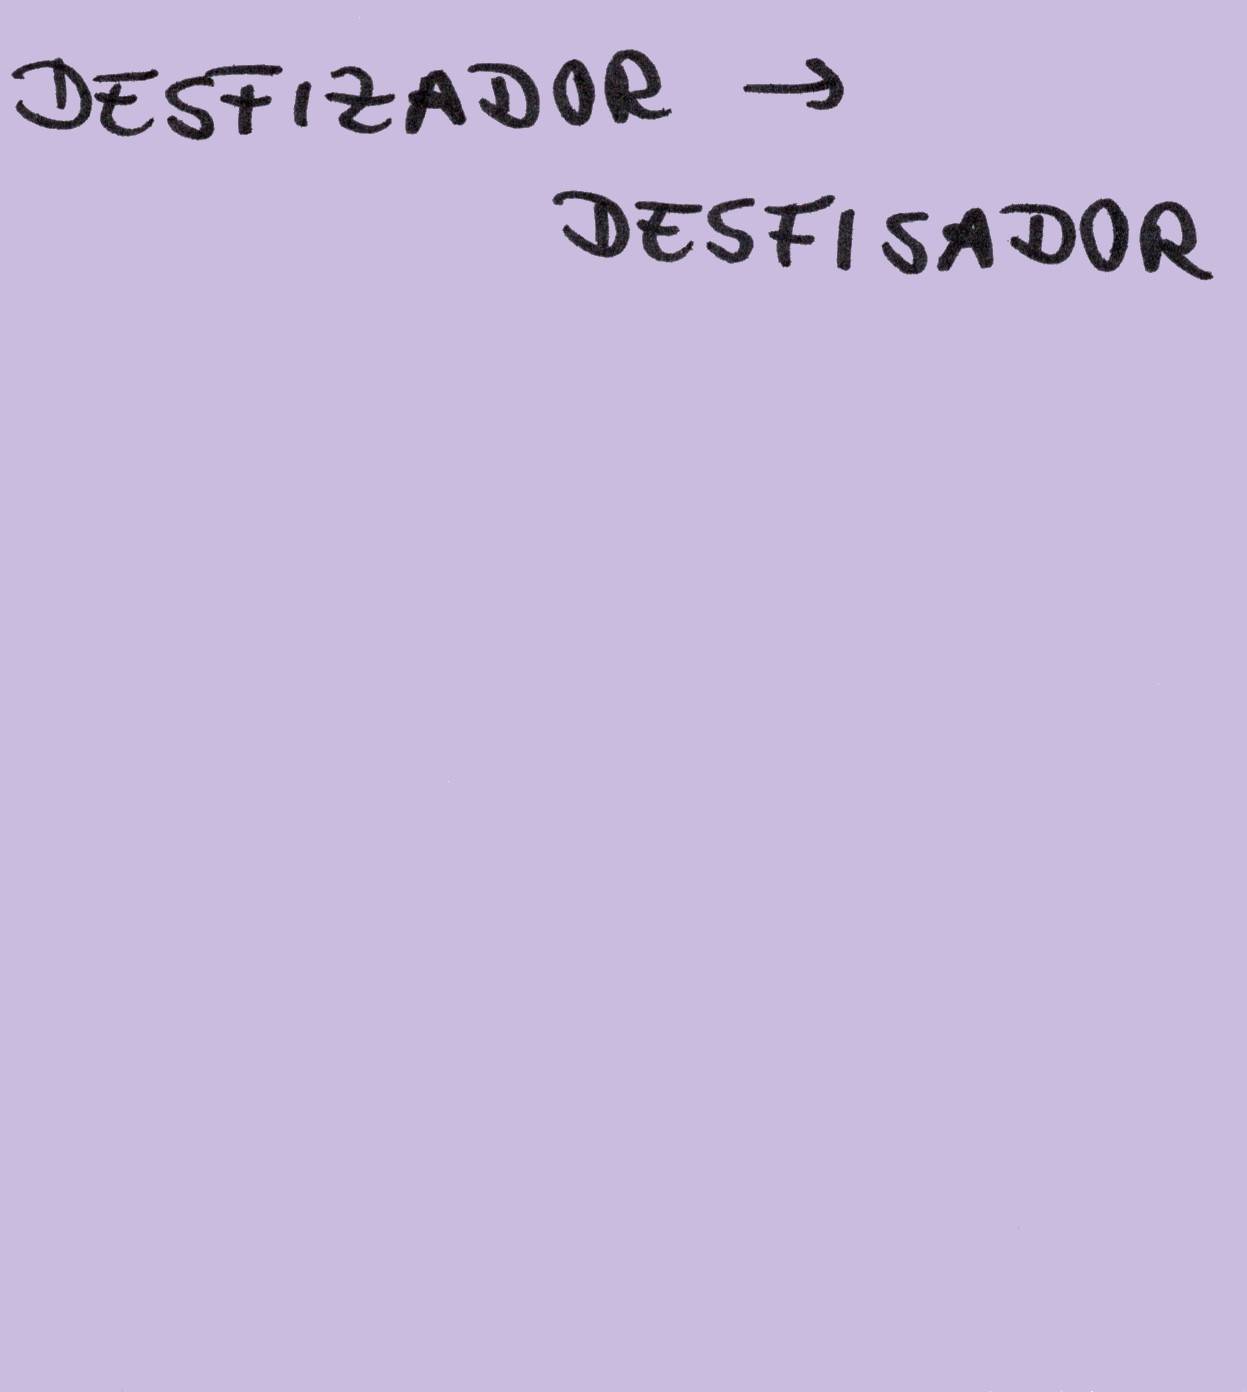 DESFIZADOR →
DESFISADOR